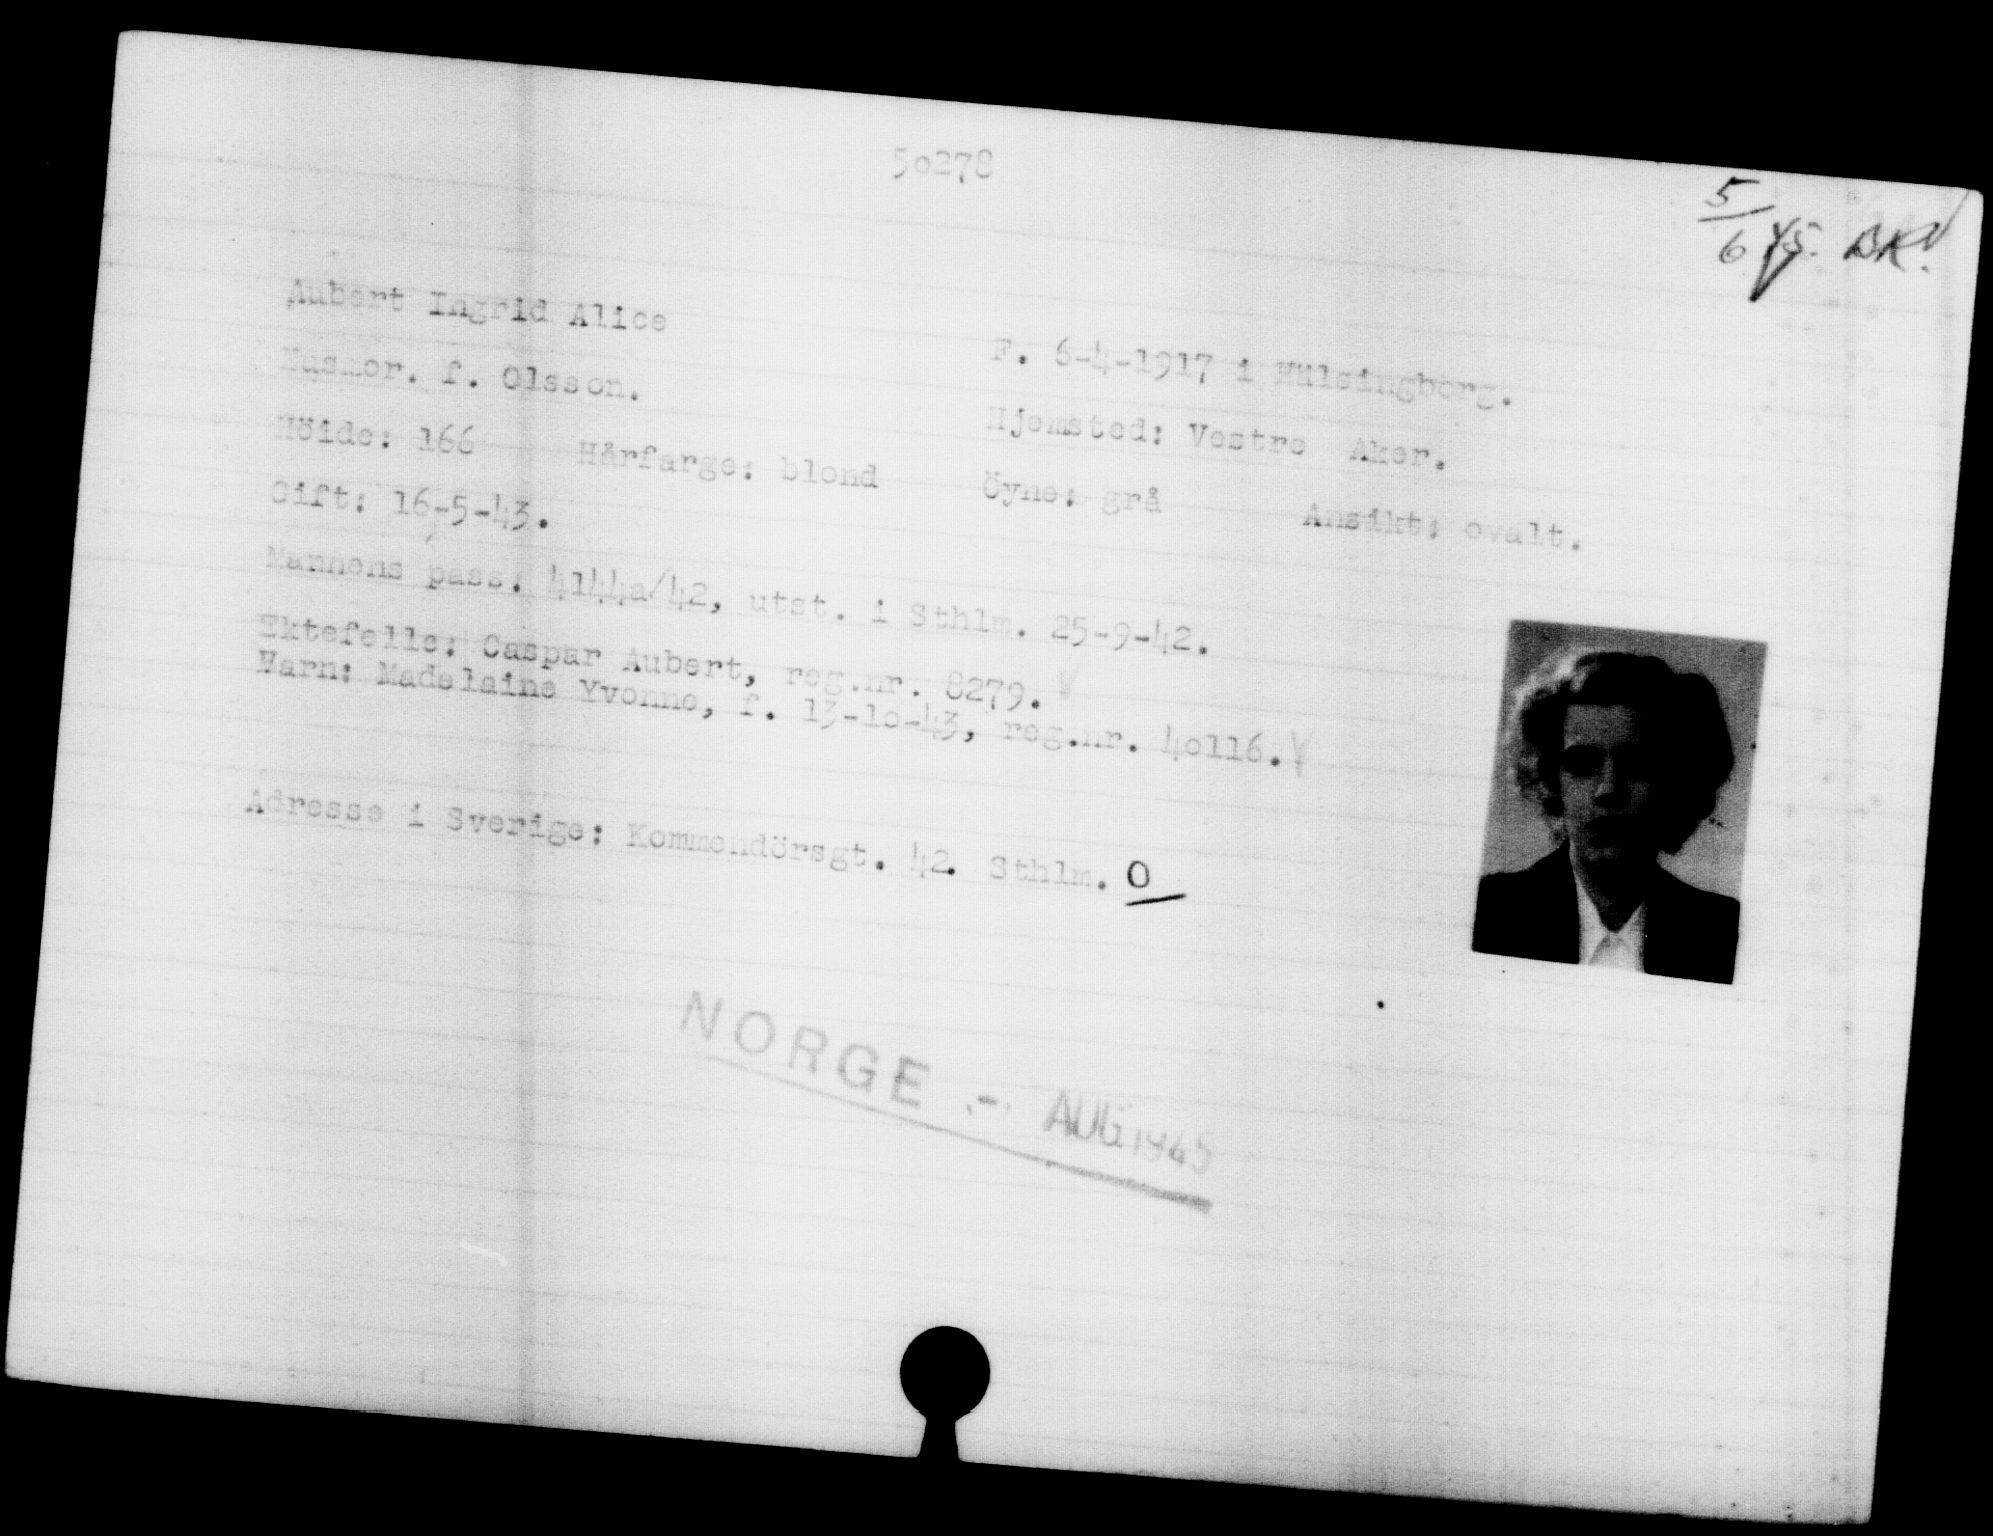 50278
5/6 45. BK.
Aubert Ingrid Alice
F. 6-4-1917 i Hälsingborg.
Husmor. f. Olsson.
Hjemsted: Vestre Aker.
Höide: 166 Hårfarge: blond Öyne: grå Ansikt: ovalt.
Gift: 16-5-43.
Mannens pass: 4144a/42, utst. i Sthlm. 25-9-42.
Ektefelle: Caspar Aubert, reg.nr. 8279. V
Barn: Madeleine Yvonne, f. 13-10-43, reg.nr. 40116. V
Adresse i Sverige: Kommendörsgt. 42. Sthlm. O
NORGE - AUG 1945